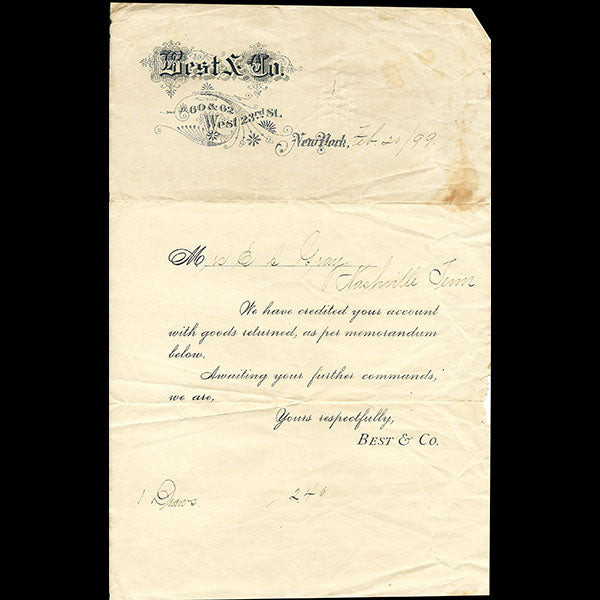 Best & Co.
60 & 62
West 23rd St.
New York, Feb 20/99
Mrs E L Gray
Nashville Tenn
We have credited your account
with goods returned, as per memorandum
below.
Awaiting your further commands,
we are,
Yours respectfully,
BEST & CO.
1 Draws 240